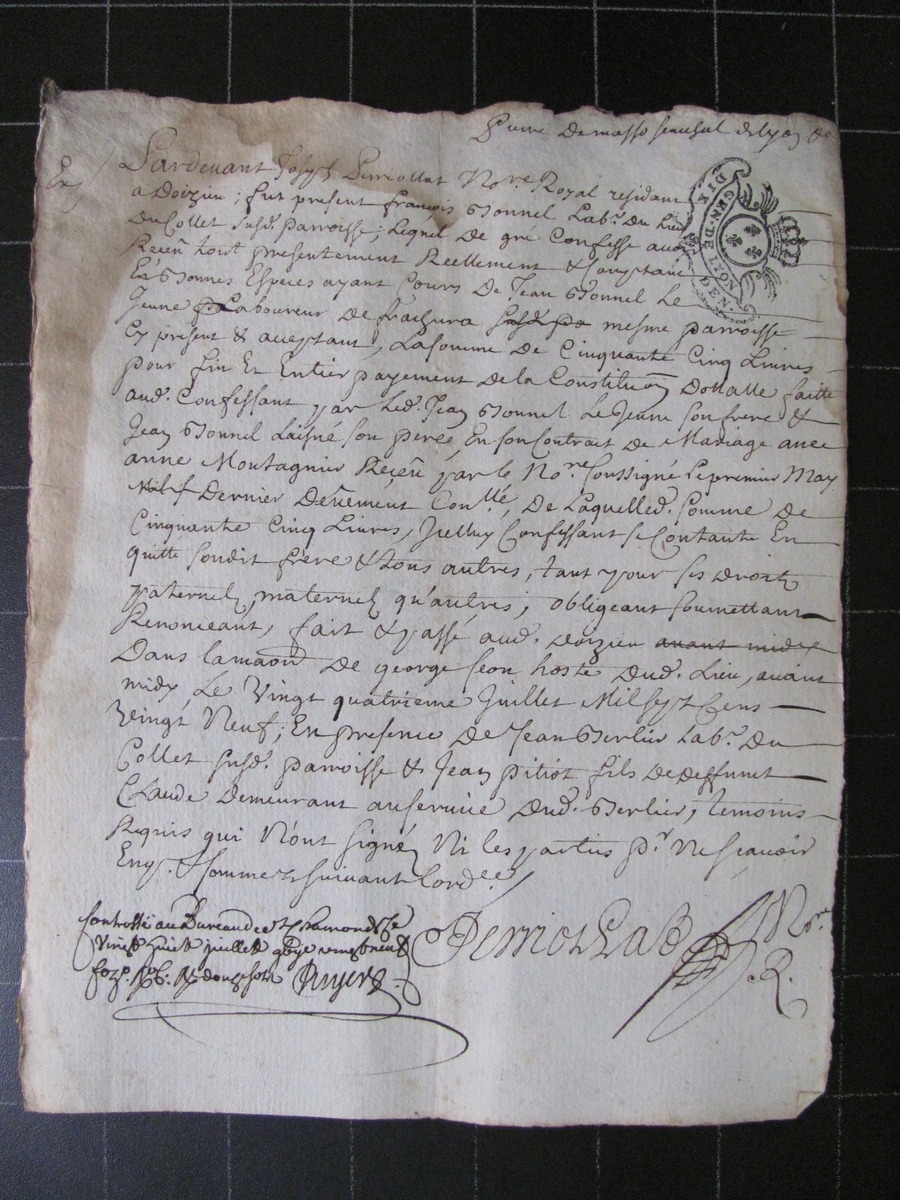 Pierre Demasso senechal de lyon &c
Exp
Pardevant Joseph Perriollat No.re Royal residant
a Doizieu; fut present françois Bonnel Lab.r du Lieu
Du Collet susd. parroisse; Lequel de gré Confesse avoir
Reçeu tout presentement Reellement & Comptant
En Bonnes Especes ayant Cours De Jean Bonnel Le
Jeune Laboureur de frachura mesme parroisse
Cy present & acceptant, Lasomme De Cinquante Cinq Livres
pour fin Et Entier payement de la Constitution Dottalle faitte
aud. Confessant par Led. Jean Bonnel Le Jeune son frere &
Jean Bonnel Laisné son pere, En son Contrait de Mariage avec
anne Montagnier Reçeu par le No.re Soussigné Le premier May
Dernier Deüement Con.llé, De Laquelle d. Somme de
Cinquante Cinq Livres, Jcelluy Confessant se Contante En
quitte sondit frere & tous autres, tant pour ses droits
paternels, maternels qu'autres; obligeant soumettant
Renonceant, fait & passé aud. Doizieu avant midy
Dans lamaon De george seon hoste Dud. Lieu, avant
midy Le Vingt quatrieme Juillet Mil sept Cens
Vingt Neuf; En presence De Jean Berlier Lab.r Du
Collet susd. parroisse & Jean pitiot fils de deffunt
Claude Demeurant auservice Dud. Berlier, temoins
Requis qui N'ont signé Ni les parties p.r Ne scavoir
Enq. & sommez suivant lord.ce
Controllé au Bureau de St chamond Le
vingt huit juillet vingt neuf
No.re
R.
GEN. DE LYON
DIX DEN.